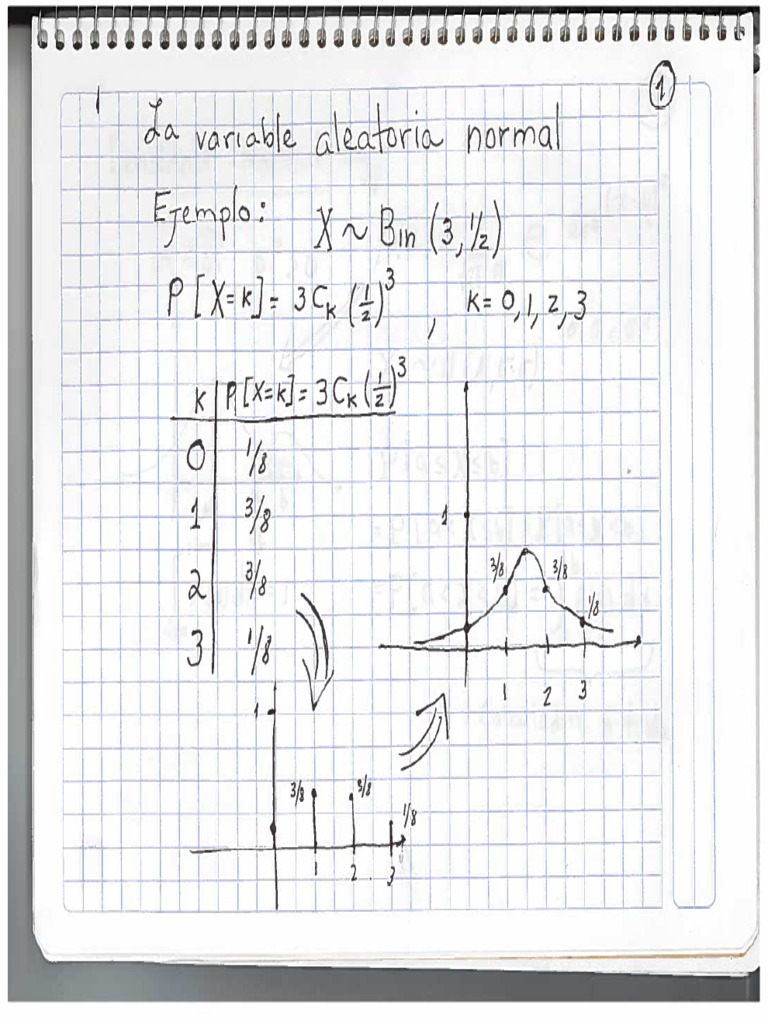 1
La variable aleatoria normal
Ejemplo: X ~ Bin (3, 1/2)
P[X=k]= 3Ck (1/2)^3 , k=0,1,2,3
k P[X=k]=3Ck(1/2)^3
0 1/8
1 3/8
2 3/8
3 1/8
1
3/8 3/8 1/8
1 2 3
1
3/8 3/8 1/8
1 2 3